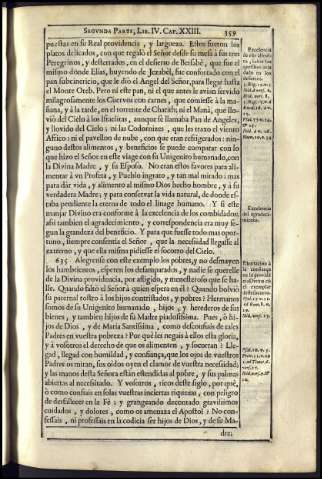 SEGVNDA PARTE, LIB. IV. CAP. XXIII. 359
puestas en su Real providencia, y largueza. Estos fueron los
platos delicados, con que regalò el Señor desde su mesa à sus tres
Peregrinos, y desterrados, en el desierto de Bersabè, que fue el
mismo donde Elias, huyendo de Jezabèl, fue confortado con el
pan subcinericio, que le diò el Angel del Señor, para llegar hasta
el Monte Oreb. Pero ni este pan, ni el que antes le avian servido
milagrosamente los Cuervos con carnes, que comiesse à la ma-
ñana, y à la tarde, en el torrente de Charith, ni el Manà, que llo-
viò del Cielo à los Israelitas, aunque se llamaba Pan de Angeles,
y llovido del Cielo; ni las Codornizes, que les traxo el viento
Africo: ni el pavellon de nube, con que eran refrigerados: nin-
guno destos alimentos, y beneficios se puede comparar con lo
que hizo el Señor en este viage con su Unigenito humanado, con
la Divina Madre, y su Esposo. No eran estos favores para ali-
mentar à vn Profeta, y Pueblo ingrato, y tan mal mirado; mas
para dàr vida, y alimento al mismo Dios hecho hombre, y à su
verdadera Madre; y para conservar la vida natural, de donde es-
taba pendiente la eterna de todo el linage humano. Y si este
manjar Divino era conforme à la excelencia de los combidados:
assi tambien el agradecimiento, y correspondencia era muy se-
gun la grandeza del beneficio. Y para que fuesse todo mas opor-
tuno, siempre consentia el Señor, que la necessidad llegasse al
extremo, y que ella misma pidiesse el socorro del Cielo.
635 Alegrense con este exemplo los pobres, y no desmayen
los hambrientos, esperen los desamparados, y nadie se querelle
de la Divina providencia, por afligido, y menesteroso que se ha-
lle. Quando faltò el Señor à quien espera en èl? Quando bolviò
su paternal rostro à los hijos contristados, y pobres? Hermanos
somos de su Unigenito humanado, hijos, y herederos de sus
bienes, y tambien hijos de su Madre piadosissima. Pues, ò hi-
jos de Dios, y de Maria Santissima, como desconfiais de tales
Padres en vuestra pobreza? Por què les negais à ellos esta gloria,
y à vosotros el derecho de que os alimenten, y socorran? Lle-
gad, llegad con humildad, y confiança, que los ojos de vuestros
Padres os miran, sus oidos oyen el clamor de vuestra necessidad;
y las manos desta Señora estàn estendidas al pobre, y sus palmas
abiertas al necessitado. Y vosotros, ricos deste siglo, por què,
ò como confiais en solas vuestras inciertas riquezas, con peligro
de desfallecer en la Fè; y grangeando decontado gravissimos
cuidados, y dolores, como os amenaza el Apostol? No con-
fessais, ni professais en la codicia ser hijos de Dios, y de su Ma-
dre;
Excelencia
del agradeci-
miento.